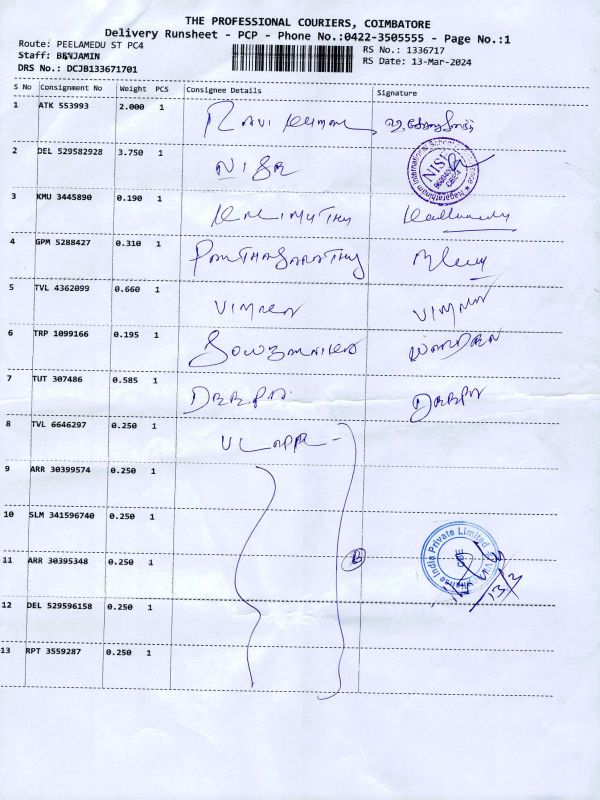 THE PROFESSIONAL COURIERS, COIMBATORE
Delivery Runsheet - PCP - Phone No.:0422-3505555 - Page No.:1
Route: PEELAMEDU ST PC4
Staff: BENJAMIN
DRS No.: DCJB133671701
RS No.: 1336717
RS Date: 13-Mar-2024
S No Consignment No Weight PCS Consignee Details Signature
1 ATK 553993 2.000 1 Ravi Kumar
2 DEL 529582928 3.750 1 NISR
3 KMU 3445890 0.190 1 KALIMUTHU
4 GPM 5288427 0.310 1 PARTHASARATHY
5 TVL 4362099 0.660 1 VIMALA VIMALA
6 TRP 1099166 0.195 1 WARDEN
7 TUT 307486 0.585 1 DEEPA DEEPA
8 TVL 6646297 0.250 1
9 ARR 30399574 0.250 1
10 SLM 341596740 0.250 1
11 ARR 30395348 0.250 1
12 DEL 529596158 0.250 1
13 RPT 3559287 0.250 1
India Private Limited
13/3